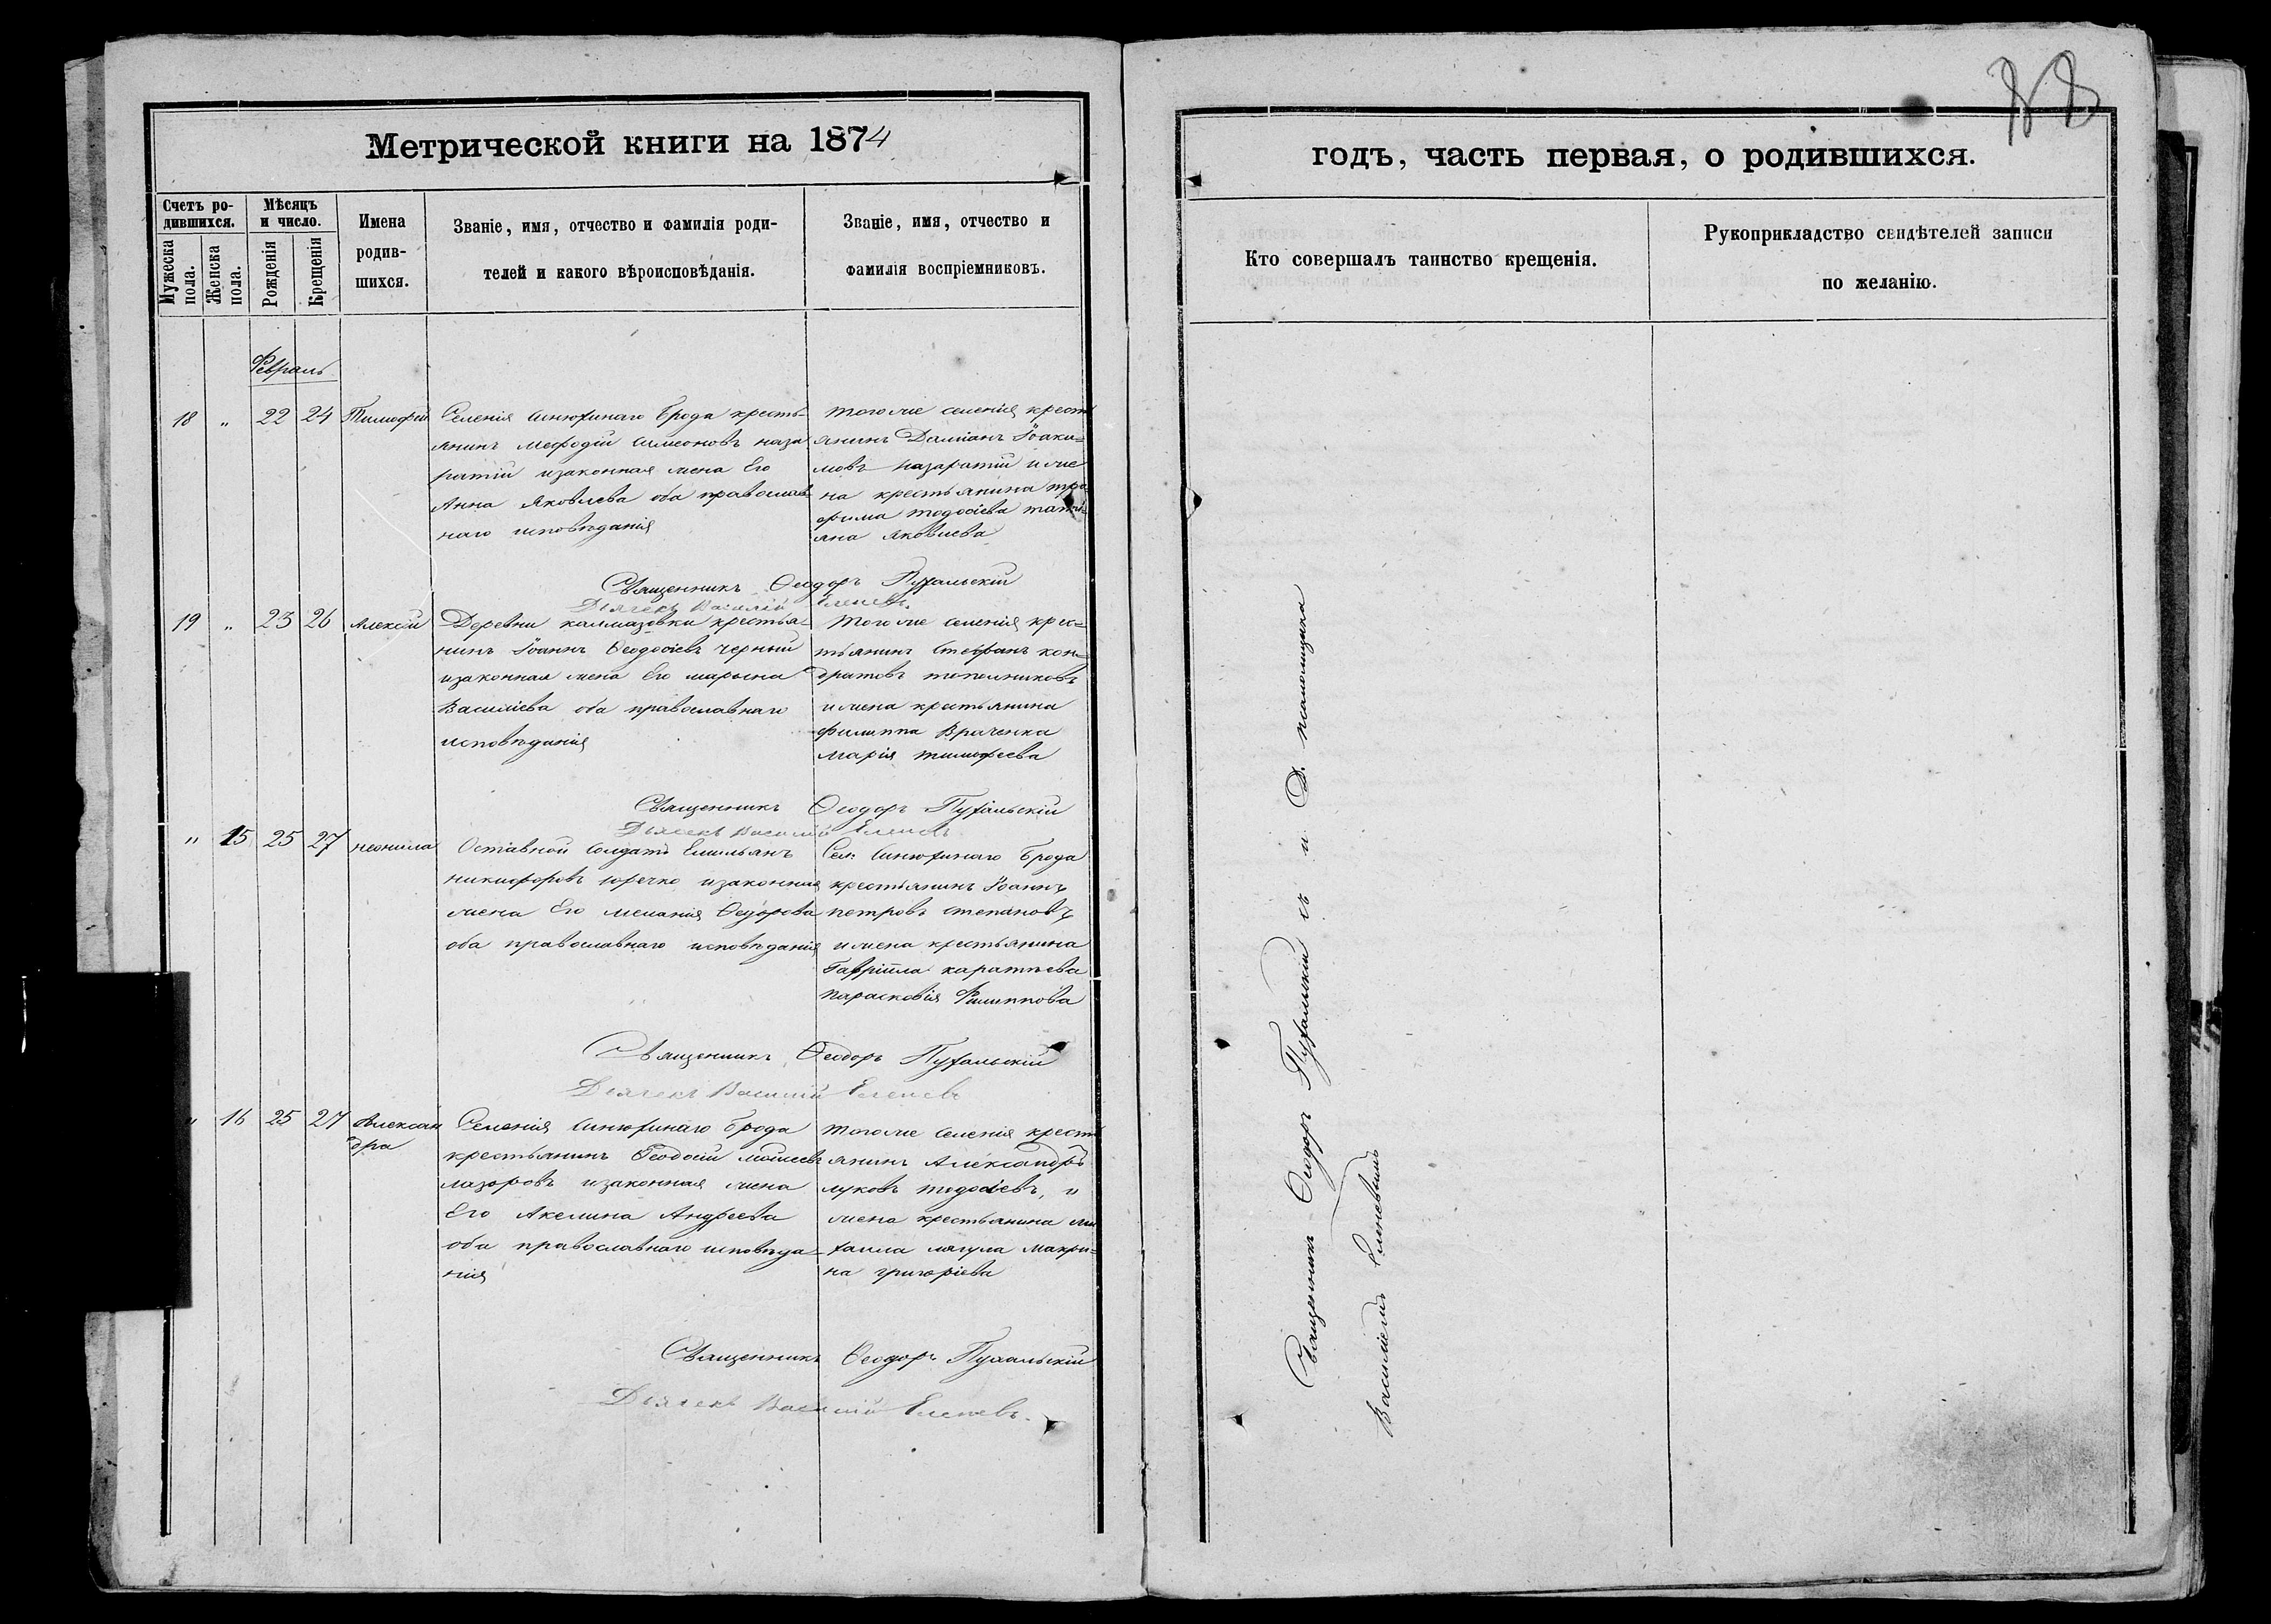 Метрической книги на 1874
Счетъ ро-
дившихся.
Мужеска пола.
Женска пола.
Мѣсяцъ
и число.
Рожденія
Крещенія
Имена
родив-
шихся.
Званіе, имя, отчество и фамилія роди-
телей и какого вѣроисповѣданія.
Званіе, имя, отчество и
фамилія воспріемниковъ.
Февраль
18 " 22 24 Тимофей
Селенія Синюхинаго Брода кресть-
янинъ Мефодій Симеоновъ наза
ратій и законная жена Его
Анна Яковлева оба православ
наго исповѣданія
тогоже селенія крест
янинъ Даміанъ Іоаки=
мовъ назаратій и же
на крестьянина тро
фима тодосіева тать
яна яковлева
Священникъ Ѳеодоръ Пухальскій
Дьячекъ Василій Еленевъ
19 " 23 26 Алексѣй
Деревни калмазовки крестья-
нинъ Іоаннъ Ѳеодосіевъ черный
и законная жена Его марьяна
Василіева оба православнаго
исповѣданія
тогоже селенія крес=
тьянинъ Стефанъ кон=
дратовъ
и жена крестьянина
филиппа Враченка
марія тимофеева
Священникъ Ѳеодоръ Пухальскій
Дьячекъ Василій Еленевъ
" 15 25 27 неонила
Отставной Солдатъ Емильянъ
никифоровъ юречко и законная
жена Его меланія Ѳедорова
оба православнаго исповѣданія
Сел: Синюхинаго Брода
крестьянинъ Іоаннъ
петровъ степановъ
и жена крестьянина
Гавріила каратѣева
парасковія Филиппова
Священникъ Ѳеодоръ Пухальскій
Дьячекъ Василій Еленевъ
" 16 25 27 Алексан
дра
Селенія Синюхинаго Брода
крестьянинъ Ѳеодосій моисеевъ
лазоровъ и законная жена
Его Акелина Андреева
оба православнаго исповѣда-
нія
тогоже селенія крест
янинъ Александръ
луковъ тодосіевъ, и
жена крестьянина ми
хаила магула макри=
на григоріева
Священникъ Ѳеодоръ Пухальскій
Дьячекъ Василій Еленевъ.
88
годъ, часть первая, о родившихся.
Кто совершалъ таинство крещенія.
Рукоприкладство свидѣтелей записи
по желанію.
Священникъ Ѳеодоръ Пухальскій съ и. д. псаломщика
Василіемъ Еленевымъ